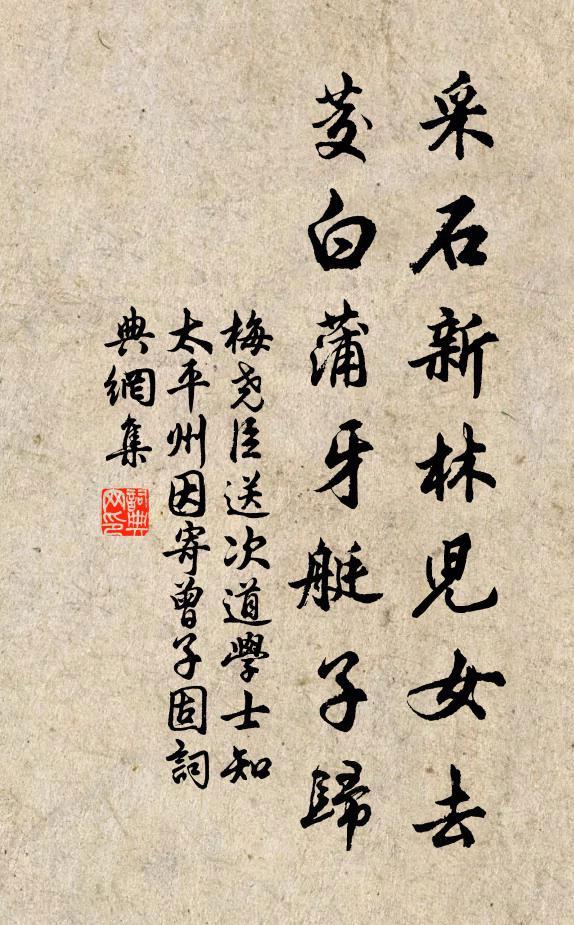 采石新林児女去
茭白蒲牙艇子歸
梅堯臣送次道學士知
太平州因寄曾子固詞
典網集
詞典網印